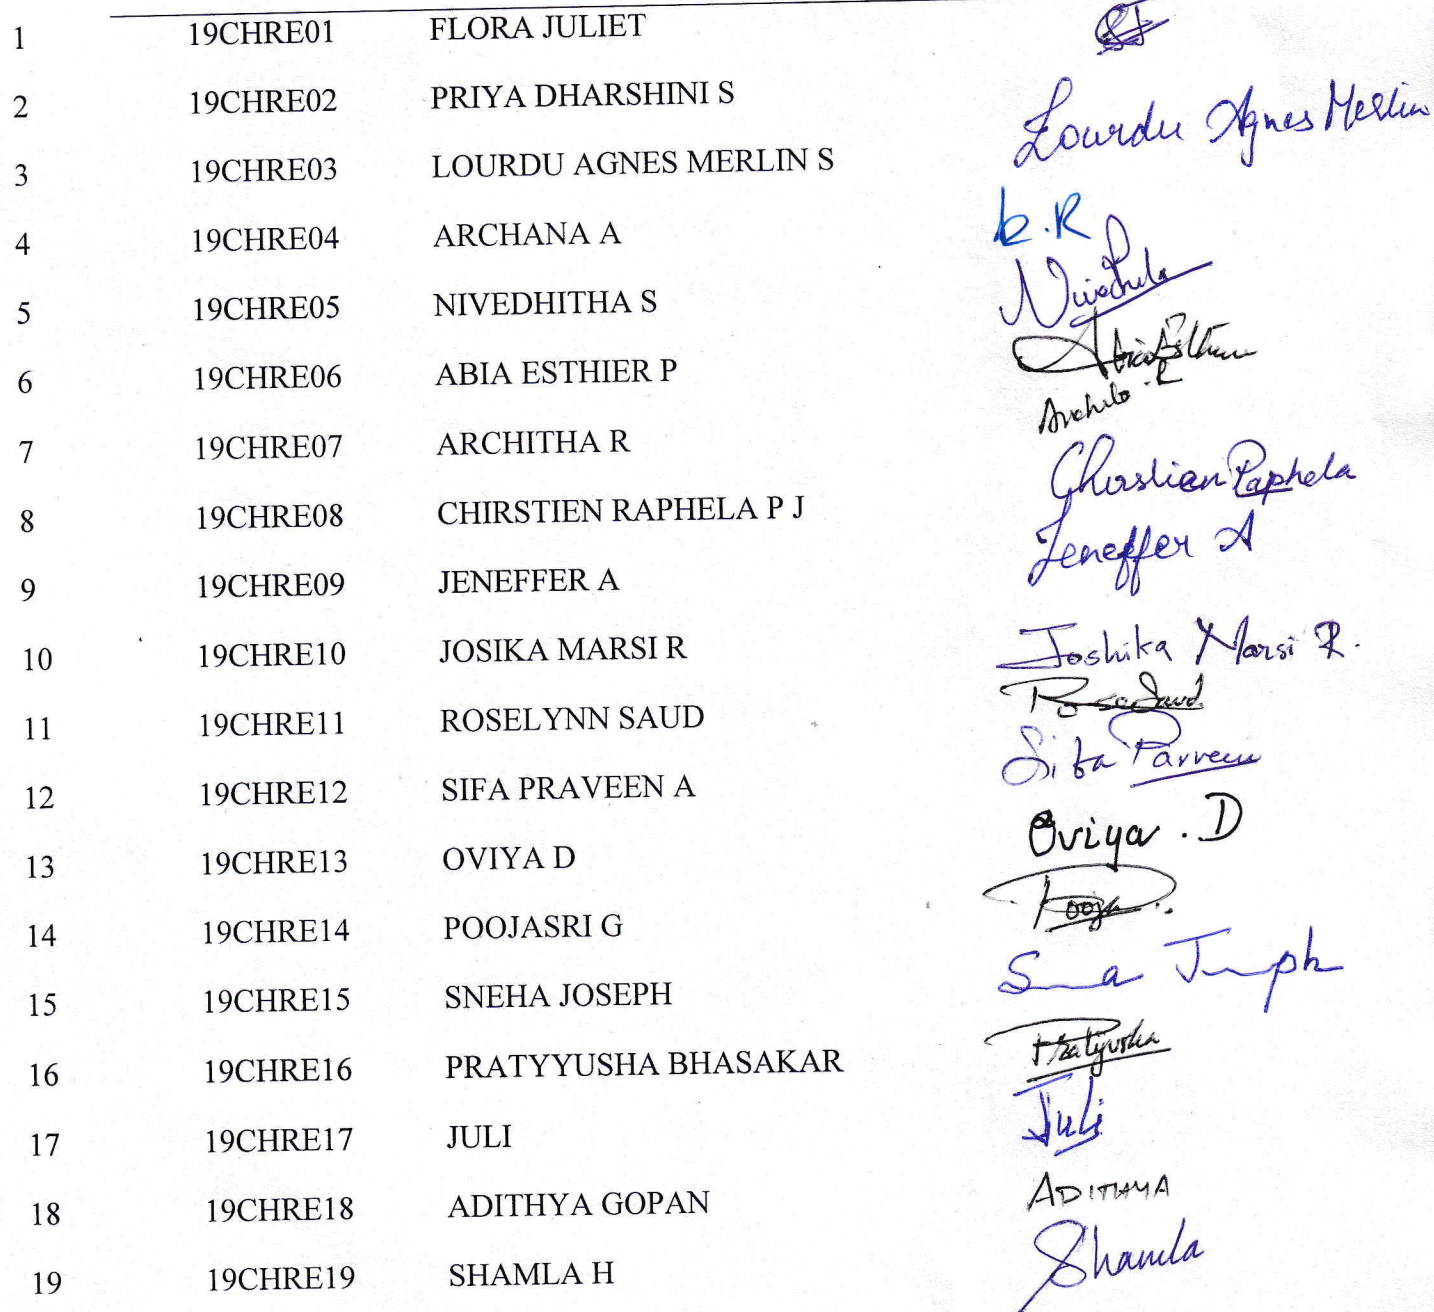 1 19CHRE01 FLORA JULIET
2 19CHRE02 PRIYA DHARSHINI S
Lourdu Agnes Merlin
3 19CHRE03 LOURDU AGNES MERLIN S
4 19CHRE04 ARCHANA A k.R
5 19CHRE05 NIVEDHITHA S
6 19CHRE06 ABIA ESTHIER P
7 19CHRE07 ARCHITHA R
8 19CHRE08 CHIRSTIEN RAPHELA P J Chirstien Raphela
9 19CHRE09 JENEFFER A Jeneffer A
10 19CHRE10 JOSIKA MARSI R Joshika Marsi R.
11 19CHRE11 ROSELYNN SAUD Rose Saud
12 19CHRE12 SIFA PRAVEEN A Sifa Parveen
13 19CHRE13 OVIYA D Oviya . D
14 19CHRE14 POOJASRI G Pooja
15 19CHRE15 SNEHA JOSEPH
16 19CHRE16 PRATYYUSHA BHASAKAR Pratyusha
17 19CHRE17 JULI Juli
18 19CHRE18 ADITHYA GOPAN ADITHYA
19 19CHRE19 SHAMLA H Shamla